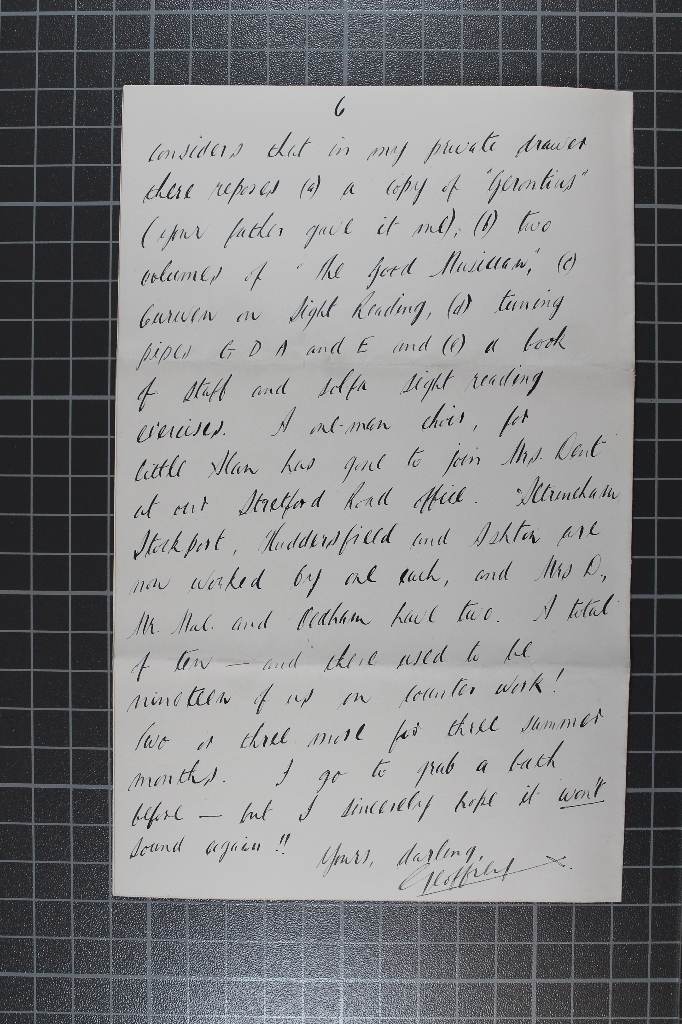 6
considers that in my private drawer
there reposes (a) a copy of "Gerontius"
(your father gave it me), (b) two
volumes of "The Good Musician", (c)
Curwen on Sight Reading, (d) tuning
pipes G D A and E and (e) a book
of staff and solfa sight reading
exercises. A one-man choir, for
little Alan has gone to join Mrs. Dent
at our Stretford Road office. Altrincham
Stockport, Huddersfield and Ashton are
now worked by one each, and Mrs D,
Mr. Mac. and Oldham have two. A total
of ten — and there used to be
nineteen of us on counter work!
Two or three more for three summer
months. I go to grab a bath
before — but I sincerely hope it won't
sound again!!
Yours, darling,
Geoffrey X.